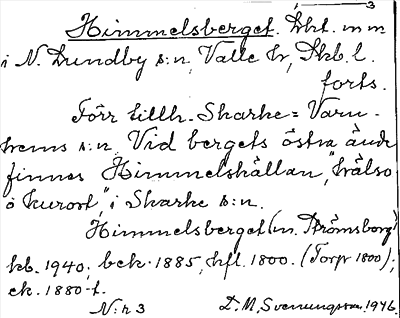 3
Himmelsberget. Lht. m m
i N. Lundby s:n, Valle hr, Skb. l.
forts.
Förr tillh. Skarke = Varn-
hems s:n. Vid bergets östra ände
finnes Himmelskällan, "hälso
o kurort", i Skarke s:n.
Himmelsberget (m. Strömsborg)
kb. 1940; bck. 1885, hfl. 1800. (Torp 1800);
ek. 1880-t.
N:r 3 D. M. Svenungsson. 1946.